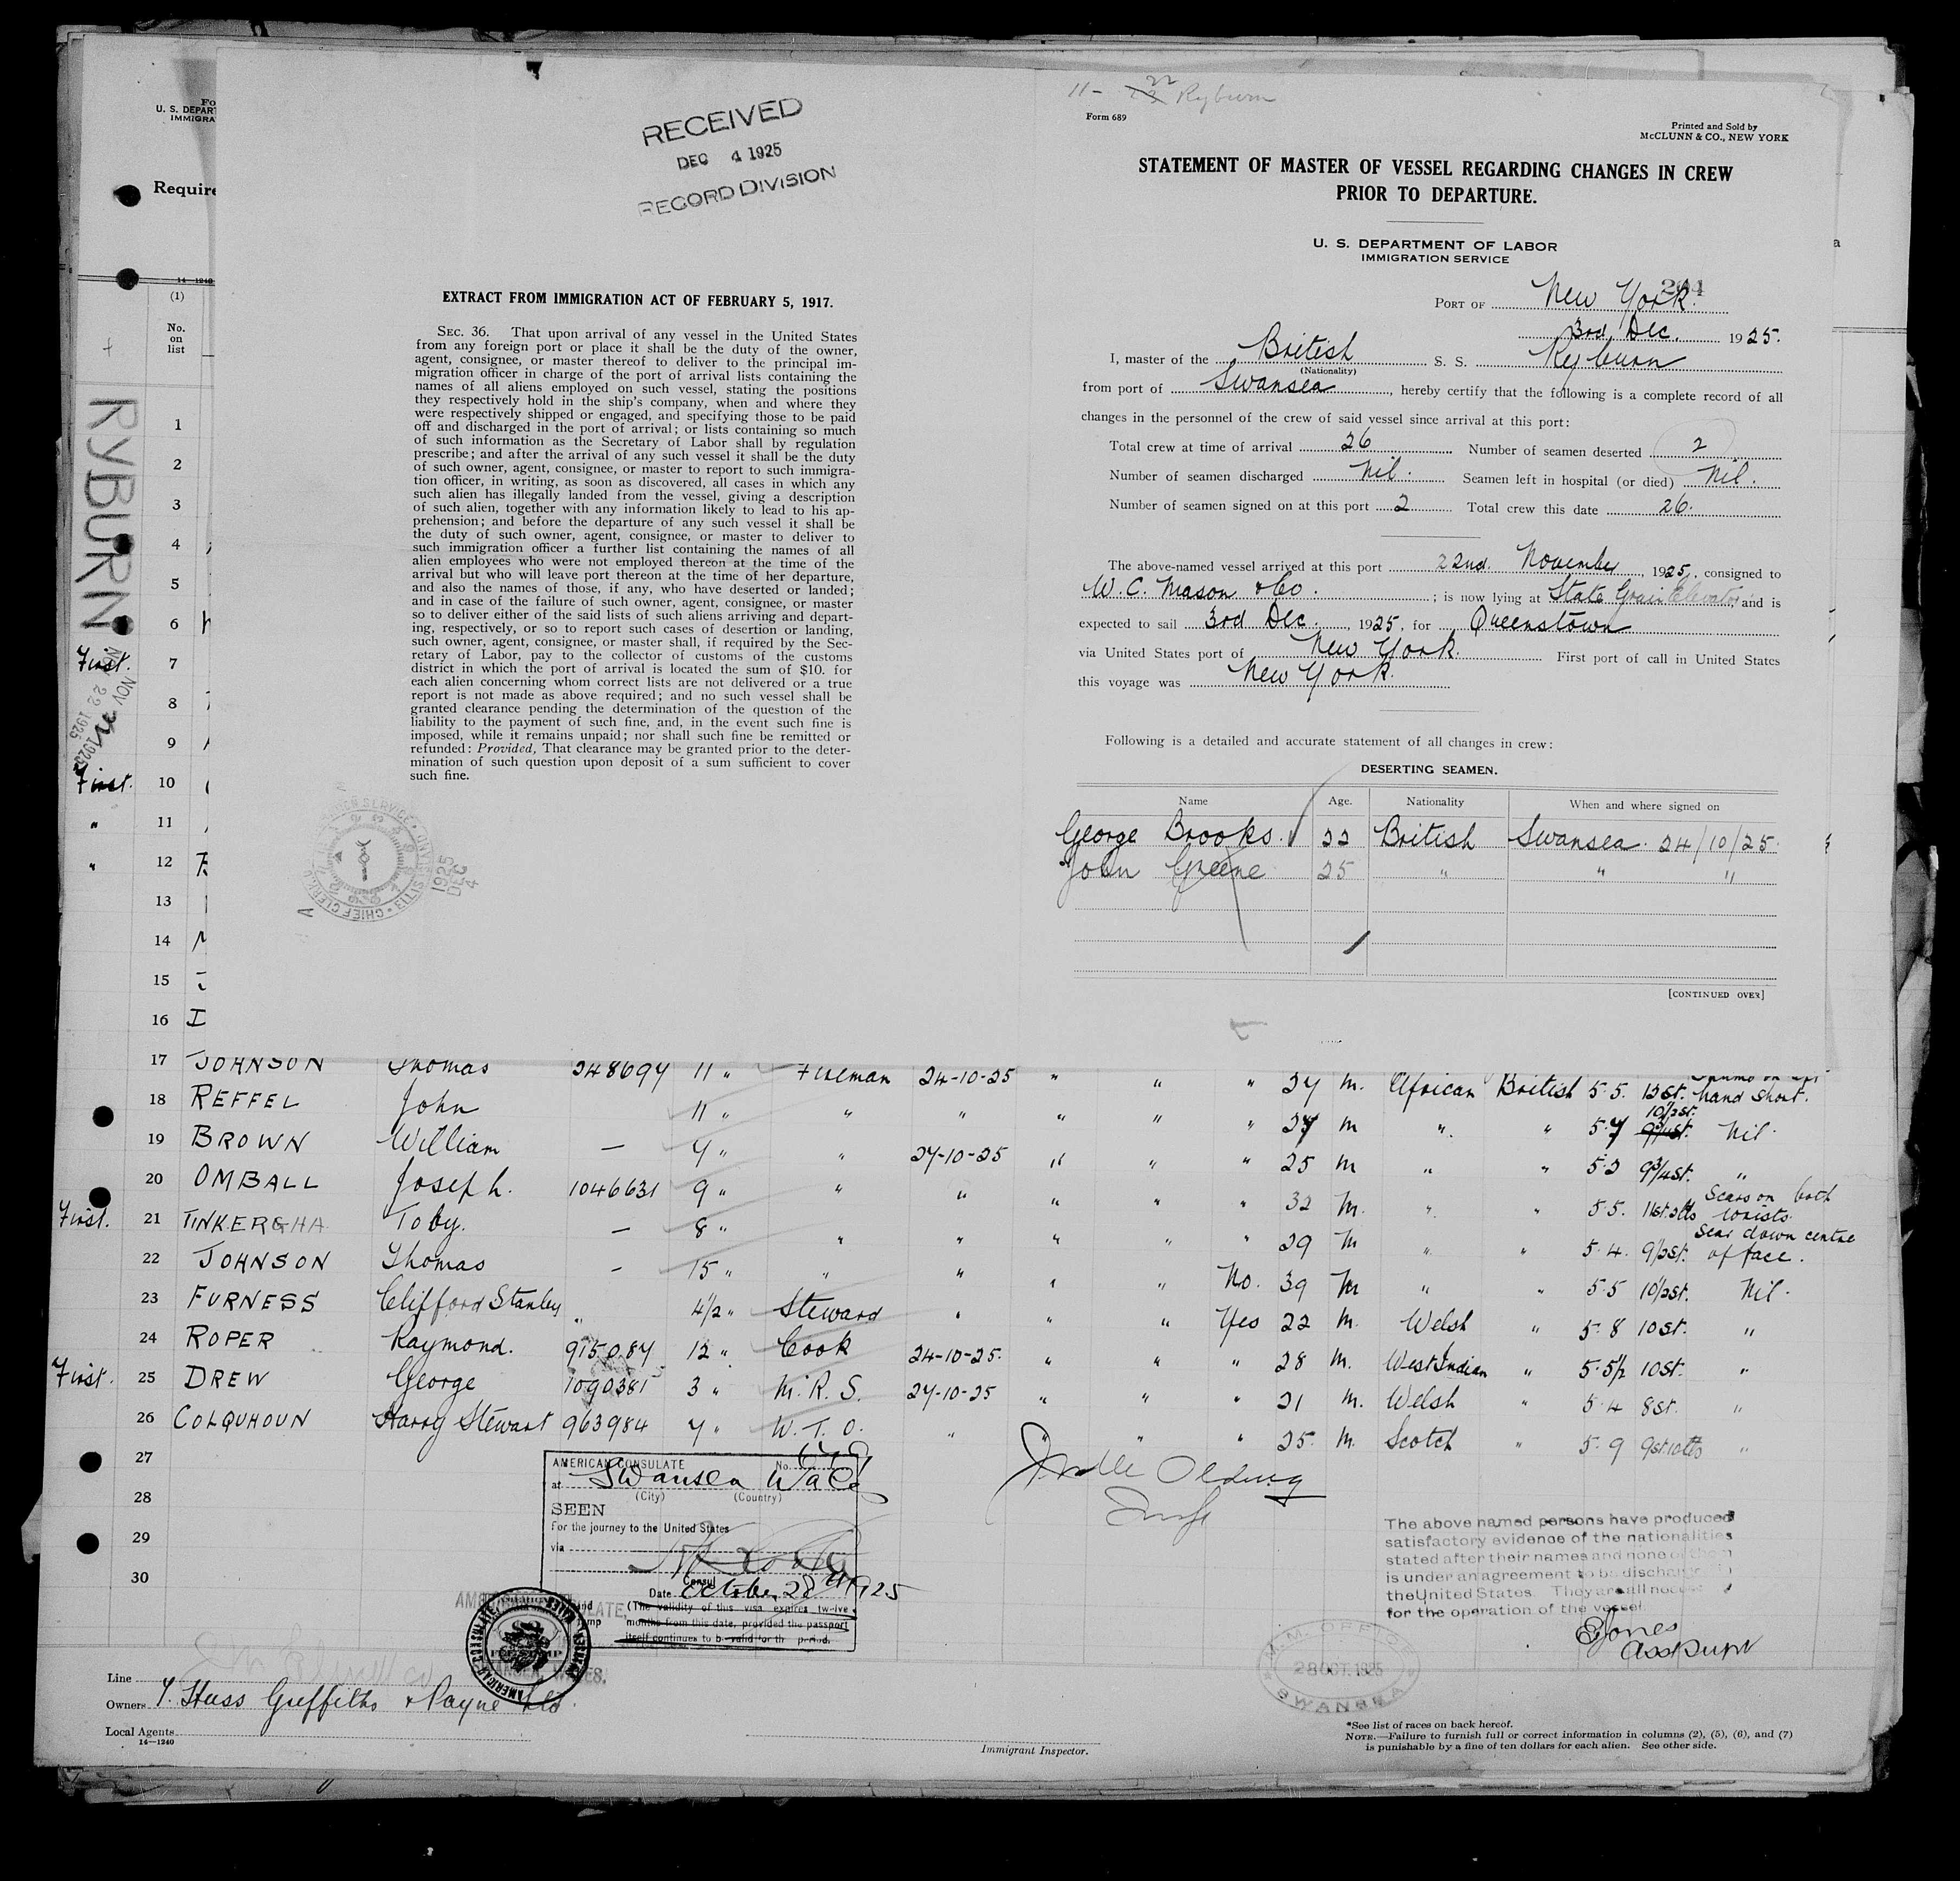 RECEIVED
DEC 4 1925
RECORD DIVISION
EXTRACT FROM IMMIGRATION ACT OF FEBRUARY 5, 1917.
SEC. 36. That upon arrival of any vessel in the United States
from any foreign port or place it shall be the duty of the owner,
agent, consignee, or master thereof to deliver to the principal im-
migration officer in charge of the port of arrival lists containing the
names of all aliens employed on such vessel, stating the positions
they respectively hold in the ship's company, when and where they
were respectively shipped or engaged, and specifying those to be paid
off and discharged in the port of arrival; or lists containing so much
of such information as the Secretary of Labor shall by regulation
prescribe; and after the arrival of any such vessel it shall be the duty
of such owner, agent, consignee, or master to report to such immigra-
tion officer, in writing, as soon as discovered, all cases in which any
such alien has illegally landed from the vessel, giving a description
of such alien, together with any information likely to lead to his ap-
prehension; and before the departure of any such vessel it shall be
the duty of such owner, agent, consignee, or master to deliver to
such immigration officer a further list containing the names of all
alien employees who were not employed thereon at the time of the
arrival but who will leave port thereon at the time of her departure,
and also the names of those, if any, who have deserted or landed;
and in case of the failure of such owner, agent, consignee, or master
so to deliver either of the said lists of such aliens arriving and depart-
ing, respectively, or so to report such cases of desertion or landing,
such owner, agent, consignee, or master shall, if required by the Sec-
retary of Labor, pay to the collector of customs of the customs
district in which the port of arrival is located the sum of $10. for
each alien concerning whom correct lists are not delivered or a true
report is not made as above required; and no such vessel shall be
granted clearance pending the determination of the question of the
liability to the payment of such fine, and, in the event such fine is
imposed, while it remains unpaid; nor shall such fine be remitted or
refunded: Provided, That clearance may be granted prior to the deter-
mination of such question upon deposit of a sum sufficient to cover
such fine.
1925 DEC 4
11- 22 Ryburn
Form 689
Printed and Sold by
McCLUNN & CO., NEW YORK
STATEMENT OF MASTER OF VESSEL REGARDING CHANGES IN CREW
PRIOR TO DEPARTURE.
U. S. DEPARTMENT OF LABOR
IMMIGRATION SERVICE
PORT OF New York.
3rd Dec. 1925.
I, master of the British S. S. Ryburn
(Nationality)
from port of Swansea, hereby certify that the following is a complete record of all
changes in the personnel of the crew of said vessel since arrival at this port:
Total crew at time of arrival 26 Number of seamen deserted 2
Number of seamen discharged Nil. Seamen left in hospital (or died) Nil.
Number of seamen signed on at this port 2 Total crew this date 26.
The above-named vessel arrived at this port 22nd. November, 1925, consigned to
W. C. Mason & Co. ; is now lying at State Grain Elevator, and is
expected to sail 3rd Dec., 1925, for Queenstown
via United States port of New York. First port of call in United States
this voyage was New York.
Following is a detailed and accurate statement of all changes in crew:
DESERTING SEAMEN.
Name Age. Nationality When and where signed on
George Brooks. 22 British Swansea. 24/10/25.
John Greene 25 " " "
[CONTINUED OVER]
U. S. DEPART
IMMIGRA
Require
14-1240
(1)
No.
on
list
RYBURN
NOV 22 1925
1
2
3
4
5
6
First. 7
8
9
First. 10
" 11
" 12
13
14
15
16
17 JOHNSON Thomas 248694 11 " Fireman 24-10-25 " " " 27 m. African British 5.5. 12st. hand short.
18 REFFEL John 11 " " " " " " 27 m " " 5.7 10½st. Nil.
19 BROWN William — 4 " " 27-10-25 " " " 25 m " " 5.2 9¾st. "
20 OMBALL Joseph. 1046631 9 " " " " " " 32 m. " " 5.5. 11st.2lbs Scars on both wrists.
First. 21 TINKERGHA Toby. — 8 " " " " " " 29 m " " 5.4. 9½st. Scar down centre of face.
22 JOHNSON Thomas — 15 " " " " " No. 39 m " " 5.5 10½st. Nil.
23 FURNESS Clifford Stanley " 4½ " Steward " " " Yes 22 m. Welsh " 5.8 10st. "
24 ROPER Raymond. 915087 12 " Cook 24-10-25. " " " 28 m. West Indian " 5.5½ 10st. "
First. 25 DREW George 1090381 3 " M. R. S. 27-10-25 " " " 21 m. Welsh " 5.4 8st. "
26 COLQUHOUN Harry Stewart 963984 4 " W. T. O. " " " " 25. m. Scotch " 5.9 9st.10lbs "
27
28
29
30
AMERICAN CONSULATE No.
at Swansea Wales
(City) (Country)
SEEN
For the journey to the United States
via
Consul
Date October 28th 1925
(The validity of this visa expires twelve
months from this date, provided the passport
itself continues to be valid for th period.
The above named persons have produced
satisfactory evidence of the nationalities
stated after their names and none of them
is under an agreement to be discharged
the United States. They are all
for the operation of the vessel.
EJones
M.M. OFFICE
28 OCT. 1925
SWANSEA
Line
Owners Griffiths & Payne Ltd.
Local Agents
14-1240
Immigrant Inspector.
*See list of races on back hereof.
NOTE.—Failure to furnish full or correct information in columns (2), (5), (6), and (7)
is punishable by a fine of ten dollars for each alien. See other side.